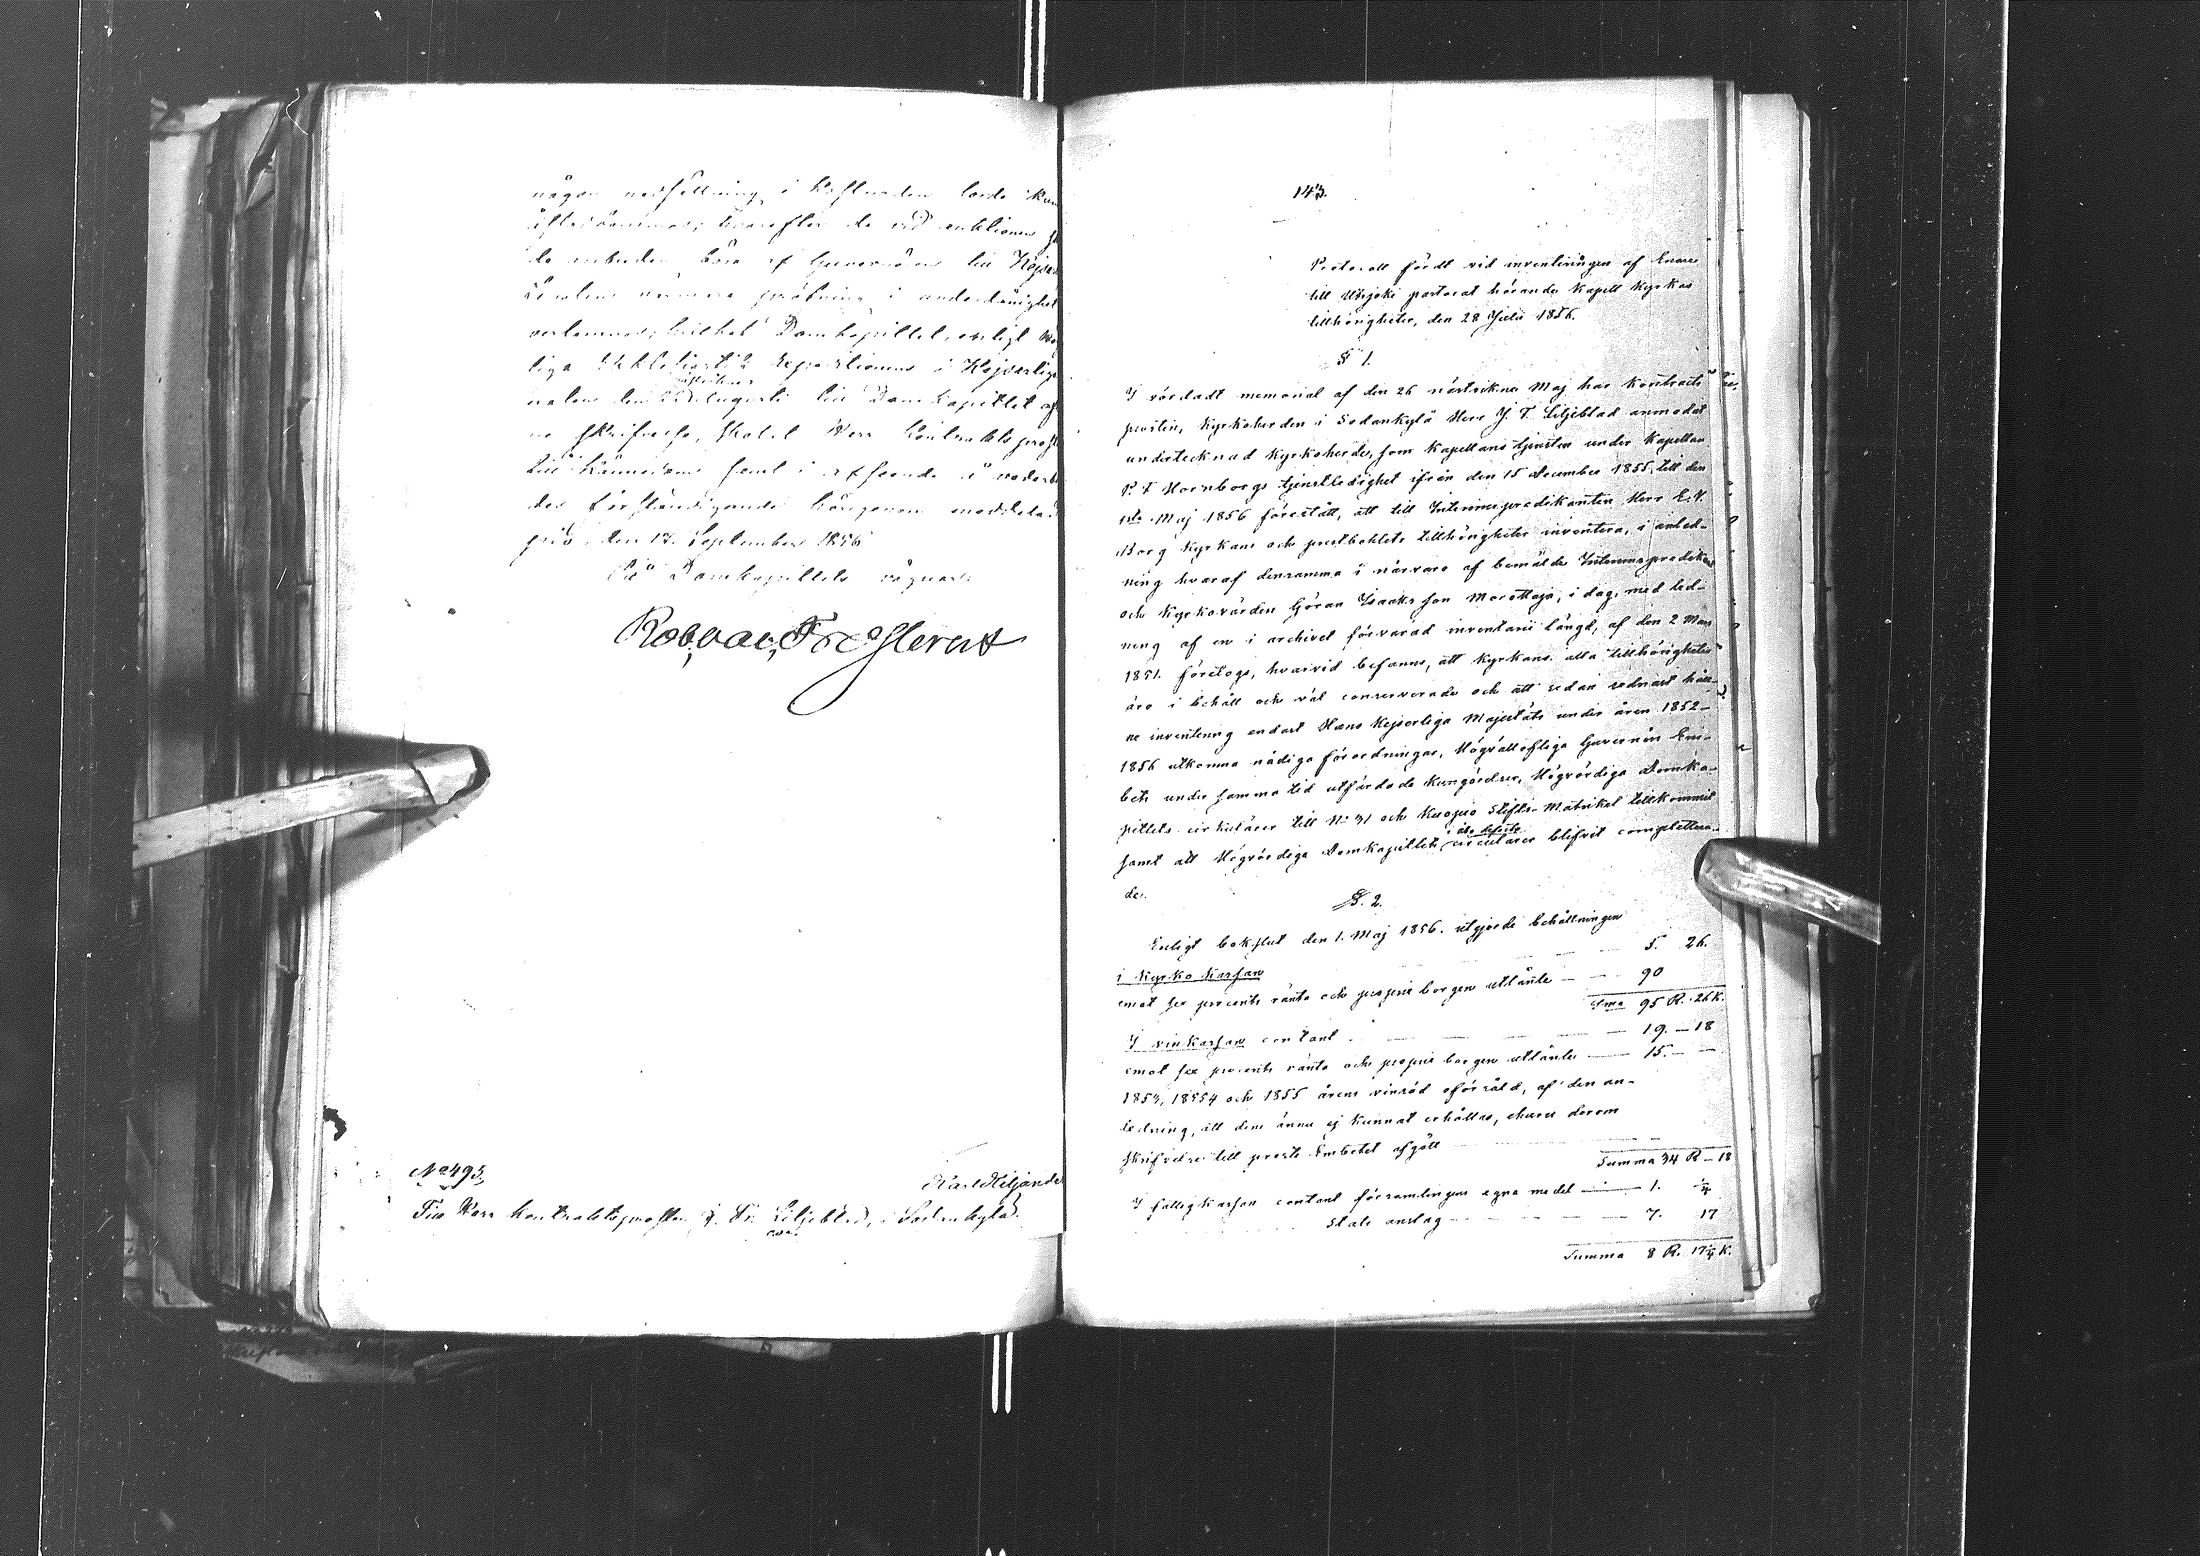 någon nedsättning i kostnaden torde kun
åstadkommas; hvarefter de vid auktionen
de anbuden böra af Guvernören till Kejser
Senatens närmare pröfning i underdånighet
öfverlemnas; hvilket Domkapitlet, enligt
liga Ecklesiastik Expeditionens i Kejserliga
Augusti till Domkapitlet
ne skrifvelse, skolat Herr Kontraktsprost
till kännedom samt i afseende å
des förständigande härigenom meddela.
den 17 September 1856
På Domkapitlets vägnar
Rob. Val. Frosterus
Karl Kiljander
No 493
Till Herr Kontraktsprosten J. Fr. Liljeblad, i Sodankylä
143.
Protocoll fördt vid inventeringen af Enare
till Utsjoki pastorat hörande Kapell Kyrkas
tillhörigheter, den 28 Julii 1856.
§ 1.
I vördadt memorial af den 26 nästvikne Maj har Kontracts
prosten, Kyrkoherden i Sodankylä Herr J. F. Liljeblad anmodat
undertecknad Kyrkoherde, som Kapellans tjensten under Kapellan
P. F Hornborgs tjenstledighet ifrån den 15 December 1855 till den
1sta Maj 1856 förestått, att till Interimspredikanten Herr E. V.
Borg Kyrkans och prestbohlets tillhörigheter inventera, i anled-
ning hvaraf densamma i närvaro af bemälde Interimspredikan
och Kyrkovärden Göran Isaaks son Morottaja, i dag, med led-
ning af en i archivet förvarad inventarii längd, af den 2 Mars
1851. företogs, hvarvid befanns, att Kyrkans alla tillhörigheter
äro i behåll och väl conserverade och att sedan sednast håll-
ne inventering endast Hans Kejserliga Majestäts under åren 1852-
1856 utkomna nådiga förordningar, Högvällofliga Guvernörs Em-
bets under samma tid utfärdade kungörelser, Högvördiga Domka-
pitlets cirkulärer till No 31 och Kuopio Stifts-Matrikel tillkommit
samt att Högvördiga Domkapitlets circulärer blifvit completera-
de.
§. 2.
Enligt bokslut den 1. Maj 1856. utgjorde behållningen
i Kyrko Kassan — 5. 26.
emot sex procents ränta och proprie borgen utlånte — 90
Sma 95 R. 26 K.
I vinkassan contant — 19. — 18
emot sex procents ränta och proprie borgen utlånte — 15. —
1853, 1854 och 1855 årens vinsäd oförsåld, af den an-
ledning, att dem ännu ej kunnat erhållas, ehuru derom
skrifvelse till prosts Embetet afgått
Summa 34 R — 18
I fattigkassan contant församlingens egna medel — 1. ¼
Stats anslag — 7. 17
Summa 8 R. 17¼ K.